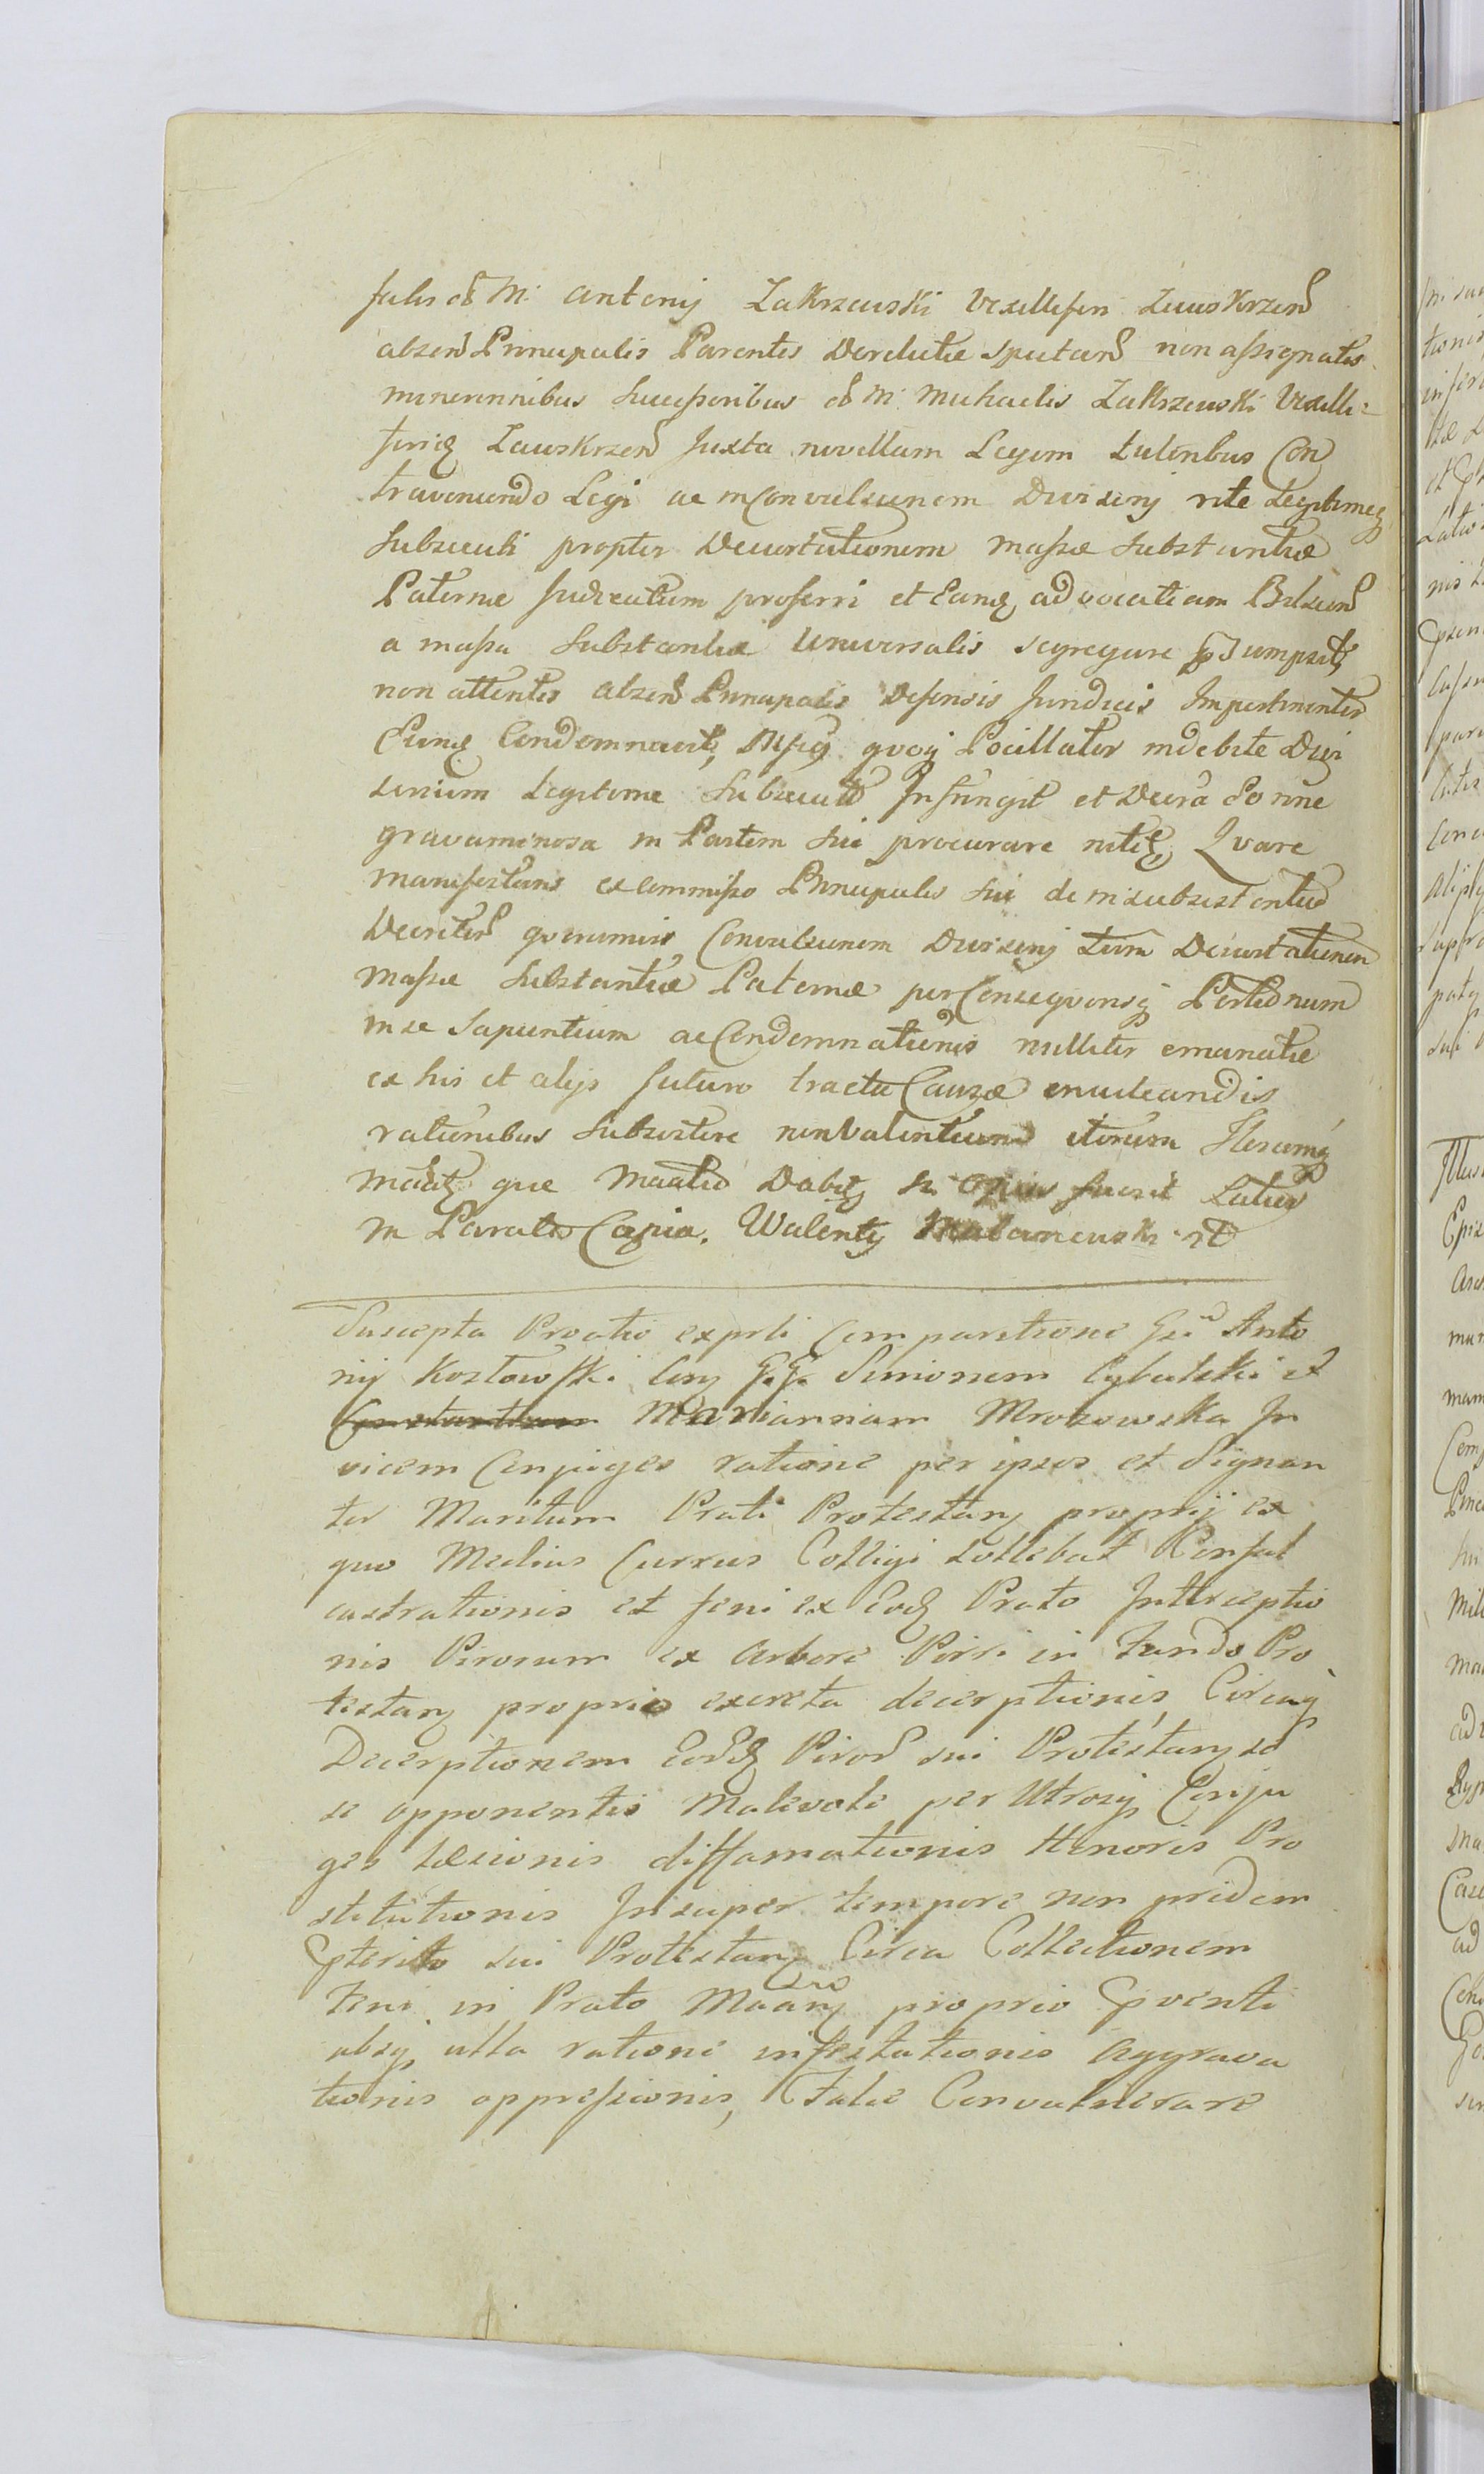 olim M. Antonij Zakrzewski Vexilliferi Zawskrzen
absen Principalis Parentis Derelictae sputan non assignatis
minorennibus Successoribus olim M. Michaelis Zakrzewski Vexilli=
feriq Zawskrzen Juxta novellam Legem tutoribus Con
traveniendo Legi ac in Convulsionem Divisorij rite Legitimeq
Subsecuti propter Decurtationem massae Substantiae
Paternae Judicatum proferri et Eamq advocatiam
a massa Substantiae Universalis segregare
non attentis absen Principalis Defensis Juridicis Impertinenter
Eumq Condemnavit, quoq Pocillator indebite Divi
sorium legitime Subsecutu Infringit et Decra
gravaminosa in Partem Sui procurare Qvare
manifestans ex commisso Principalis Sui de insubsistentia
qvoniminus Convulsionem Divisorij tum Decurtationem
Massae Substantiae Paternae per Conseqvensq Portionum
in se Sapientium ac Condemnationis nulliter emanatae
ex his et alijs futuro tractu Causae enucleandis
rationibus Subsistere non Valentium iterum Iterumq
que Dabit Si Opus fuerit Latius
in Parato Copia. Walenty
Suscepta Protio exprti Comparitione Grsi Anto
nij Kozłowski Con G.G. Simonem Cybulski et
Mariannam Mrozowska In
vicem Conjuges ratione per ipsos et Signan
ter Maritum Prati Protestan proprij ex
quo Medius Currus Colligi sollebat
castrationis et feni ex Eod Prato Interceptio
nis Pirorum ex Arbore Pirri in Fundo Pro
testan proprio excreta decerptionis, Circaq
Decerptionem Eord Piror sui Protestan
se opponentis Malevole per Utrosq Conju
ges laesionis diffamationis Honoris Pro
stitutionis Insuper tempore non pridem
Pterito sui Protestan Circa Collectionem
Feni in Prato proprio Pventi
absq ulla ratione infestationis Aggrava
tionis oppressionis, Talie Convulnerare